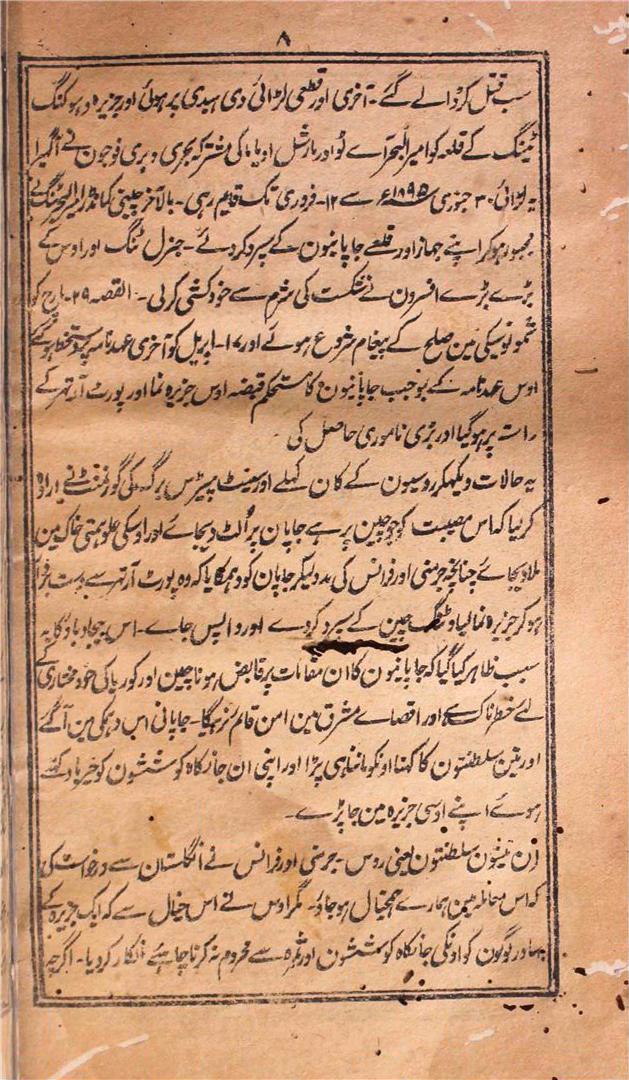 ۸
سب قتل کر ڈالے گئے۔ آخری اور قطعی لڑائی دی ہیدی پر ہوئی اور جزیرہ دہو کنگ
ٹینگ کے قلعہ کو امیر البحر آے ٹو اور مارشل اویاما کی مشترکہ بحری و بری فوجون نے آگھیرا
یہ لڑائی ۳۰ جنوری ۱۸۹۵ء سے ۱۲۔ فروری تک قایم رہی۔ بالآخر چینی کمانڈر امیر البحر ٹنگ نے
مجبور ہوکر اپنے جہاز اور قلعے جاپانیون کے سپرد کردئے۔ جنرل ٹنگ اور اوس کے
بڑے بڑے افسرون نے شکست کی شرم سے خودکشی کرلی۔ القصہ ۲۹۔ مارچ کو
شمونوسیکی مین صلح کے پیغام شروع ہوئے اور ۱۷۔ اپریل کو آخری عہدنامہ پر دستخط ہوگئے
اوس عہدنامہ کے بموجب جاپانیون کا مستحکم قبضہ اوس جزیرہ نما اور پورٹ آرتھر کے
راستہ پر ہوگیا اور بڑی ناموری حاصل کی۔
یہ حالات دیکھکر روسیون کے کان کھلے اور سینٹ پیٹرس برگ کی گورنمنٹ نے ارادہ
کرلیا کہ اس مصیبت کو جو چین پر ہے جاپان پر اُلٹ دیجائے اور اوسکی علوہمتی خاک مین
ملا دیجائے چنانچہ جرمنی اور فرانس کی مدد لیکر جاپان کو دھمکایا کہ وہ پورٹ آرتھر سے دست بردار
ہوکر جزیرہ نما لیاوٹنگ چین کے سپرد کردے اور واپس جاے۔ اس بیجا دباؤ کا یہ
سبب ظاہر کیا گیا کہ جاپانیون کا ان مقامات پر قابض ہونا چین اور کوریا کی خود مختاری کے
لئے خطرناک ہے اور اقصاے مشرق مین امن قائم نرہیگا۔ جاپانی اس دہمکی مین آگئے
اور تین سلطنتون کا کہنا اونکو ماننا ہی پڑا اور اپنی ان جانکاہ کوششون کو خیرباد کہتے
ہوے اپنے اوسی جزیرہ مین جا پڑے۔
اِن تینون سلطنتون یعنی روس۔ جرمنی اور فرانس نے انگلستان سے درخواست کی
کہ اس معاملہ مین ہمارے ہمخیال ہوجاؤ۔ مگر اوس نے اس خیال سے کہ ایک جزیرہ کے
بہادر لوگون کو اونکی جانکاہ کوششون اور ثمرہ سے محروم نہ کرنا چاہئے انکار کردیا۔ اگرچہ